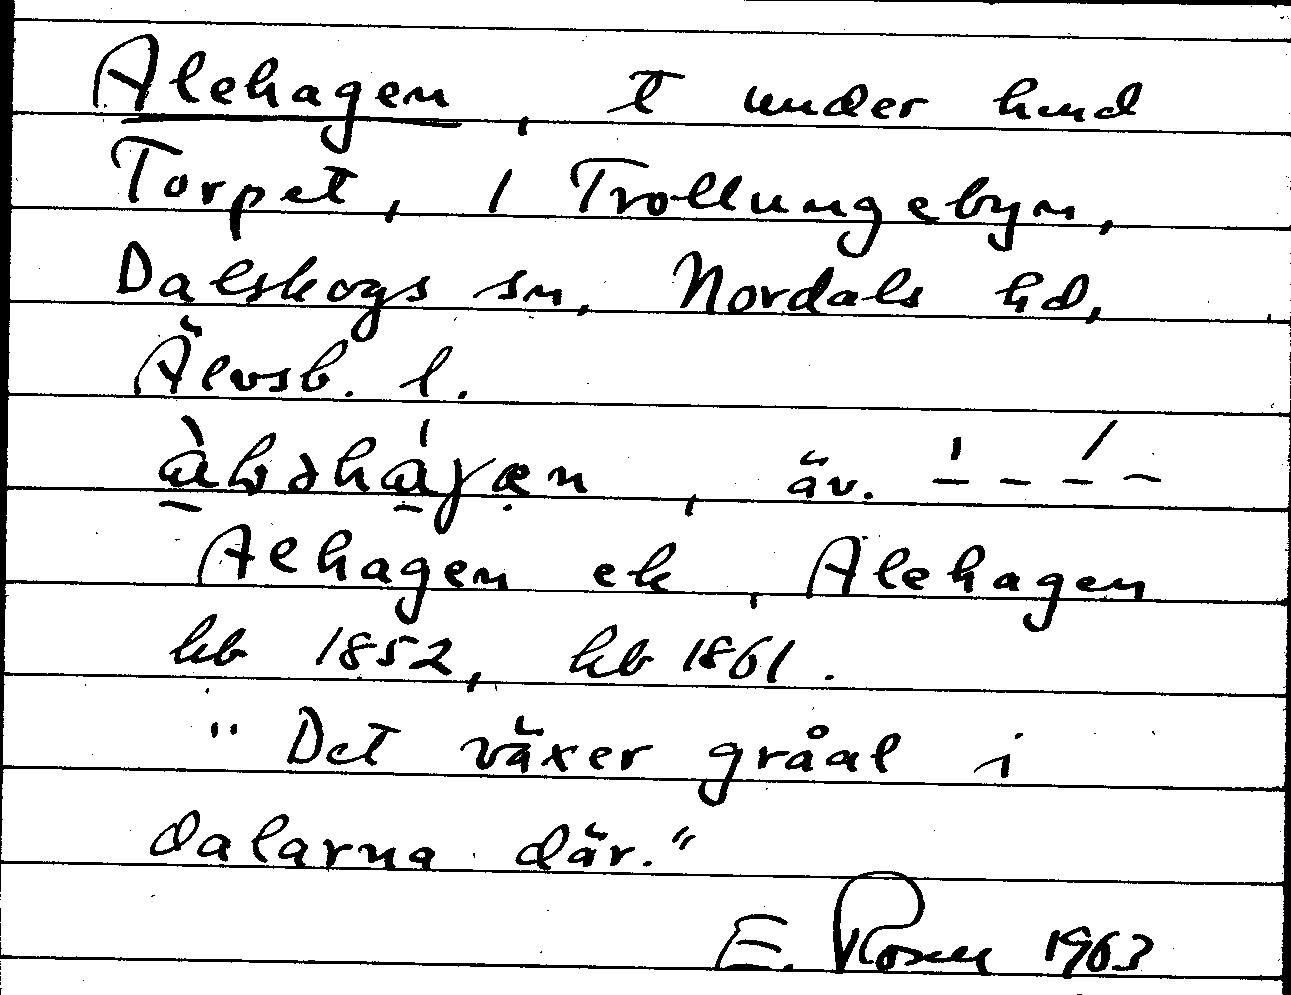 Alehagen, t under hmd
Torpet, 1 Trollungebyn,
Dalskogs sn, Nordals hd,
Älvsb. l.
äv.
Alhagen ek, Alehagen
hb 1852, hb 1861.
"Det växer gråal i
dalarna där."
E. Rosen 1963